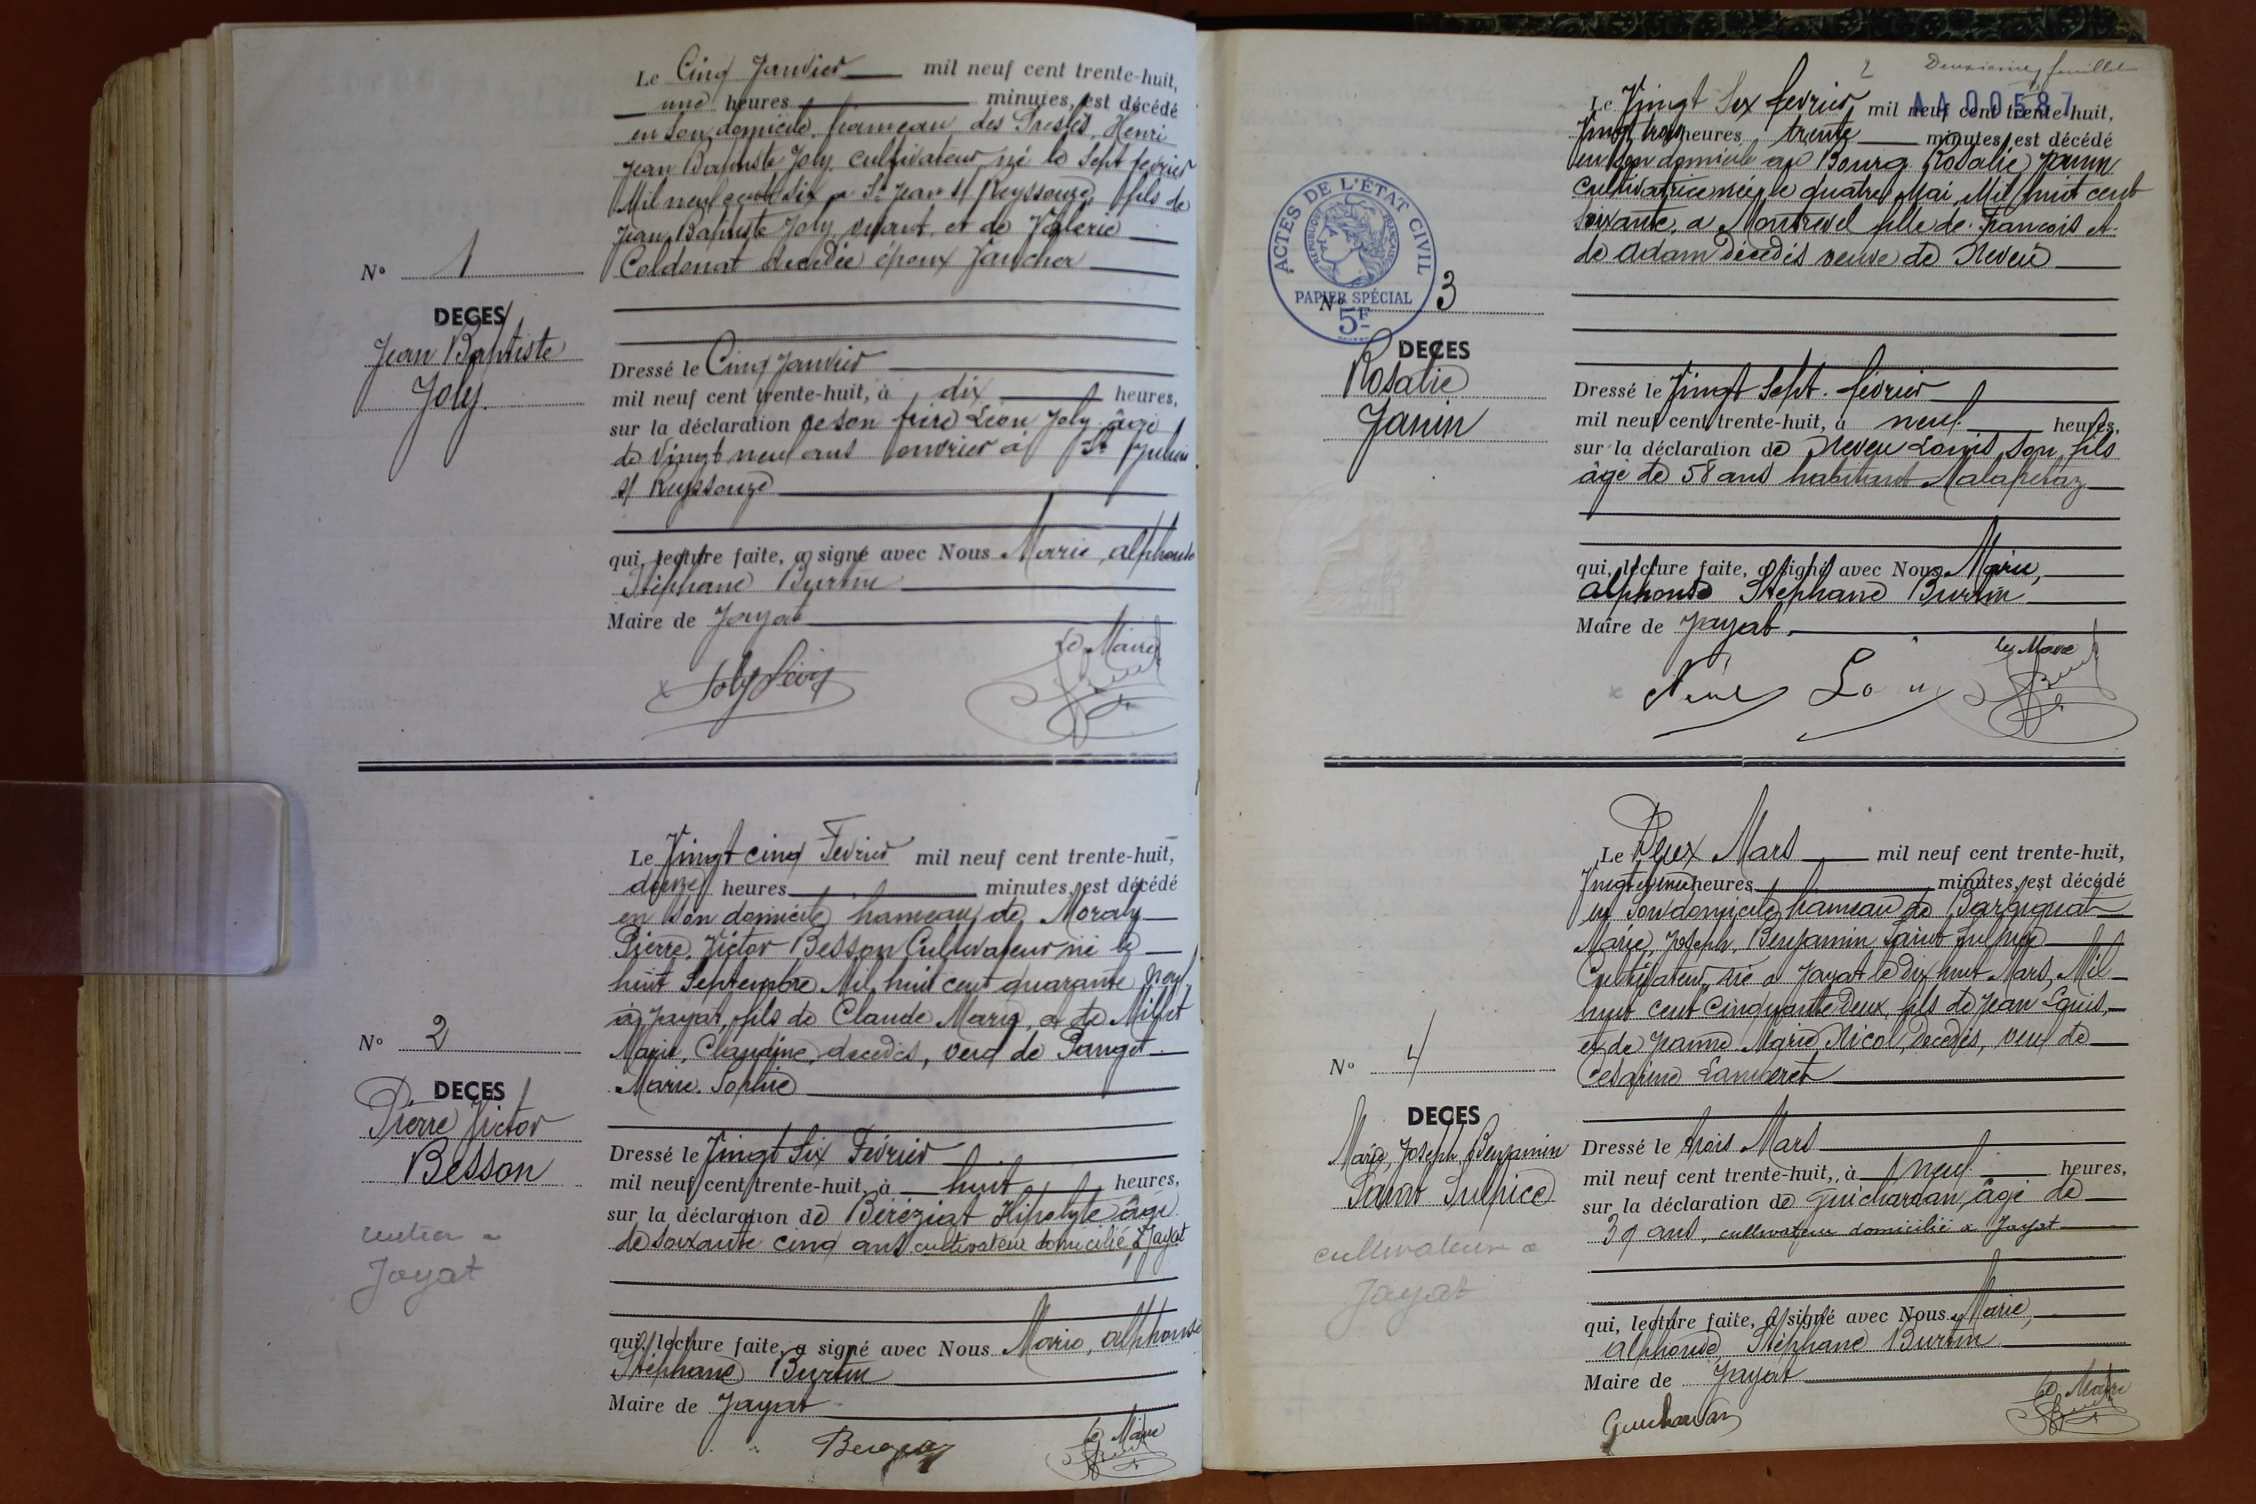 Le Cinq Janvier mil neuf cent trente-huit,
une heures minutes, est décédé
en son domicile hameau des Henri
Jean Baptiste Joly cultivateur né le sept fevrier
Mil neuf cent six a St Jean s/ Reyssouze, fils de
Jean Baptiste Joly vivant et de Valerie
décédée époux
N° 1
DECES
Jean Baptiste
Joly.
Dressé le Cinq Janvier
mil neuf cent trente-huit, à dix heures,
sur la déclaration de son frère Léon Joly âgé
de Vingt neuf ans ouvrier à St Julien
s/ Reyssouze
qui, lecture faite, a signé avec Nous Marie, alphonse
Stéphane Burtin
Maire de Jayat
Le Maire
Joly Léon
Le Vingt cinq Fevrier mil neuf cent trente-huit,
douze heures minutes, est décédé
en son domicile hameau de Moraly
Pierre, Victor Besson Cultivateur né le
huit Septembre Mil huit cent quarante neuf
à Jayat, fils de Claude Marie, et de Millet
Marie, Claudine, décédés, veuf de Panget
Marie. Sophie
N° 2
DECES
Pierre Victor
Besson
rentier a
Jayat
Dressé le Vingt Six Février
mil neuf cent trente-huit, à huit heures,
sur la déclaration de Béréziat Hipolyte âgé
de soixante cinq ans cultivateur domicilié à Jayat
qui, lecture faite, a signé avec Nous Marie, alphonse
Stéphane Burtin
Maire de Jayat
Le Maire
2 Deuxieme feuillet
AA00587
Le Vingt Six fevrier mil neuf cent trente-huit,
Vingt trois heures trente minutes, est décédé
en son domicile au Bourg Rosalie Janin
Cultivatrice née le quatre Mai Mil huit cent
soixante, a Montrevel fille de Francois et
de Adam décédés veuve de Neveu
ACTES DE L'ÉTAT CIVIL
RÉPUBLIQUE FRANÇAISE
PAPIER SPÉCIAL
5F
N° 3
DECES
Rosalie
Janin
Dressé le Vingt Sept. février
mil neuf cent trente-huit, à neuf heures,
sur la déclaration de Neveu Louis, son fils
âgé de 58 ans habitant Malafretaz
qui, lecture faite, a signé avec Nous Marie,
alphonse Stéphane Burtin
Maire de Jayat
Le Maire
Le Deux Mars mil neuf cent trente-huit,
heures minutes, est décédé
en son domicile hameau de
Marie, Joseph, Benjamin Saint Sulpice
Cultivateur, né a Jayat le dix huit Mars, Mil
huit cent Cinquante Deux, fils de Jean Louis,
et de Jeanne Marie Nicol, décédés, veuf de
Césarine Lamberet
N° 4
DECES
Marie, Joseph Benjamin
Saint Sulpice
cultivateur a
Jayat
Dressé le trois Mars
mil neuf cent trente-huit, à neuf heures,
sur la déclaration de Guichardan, âgé de
39 ans, cultivateur domicilié a Jayat
qui, lecture faite, a signé avec Nous Marie,
alphonse, Stéphane Burtin
Maire de Jayat
Le Maire
Guichardan